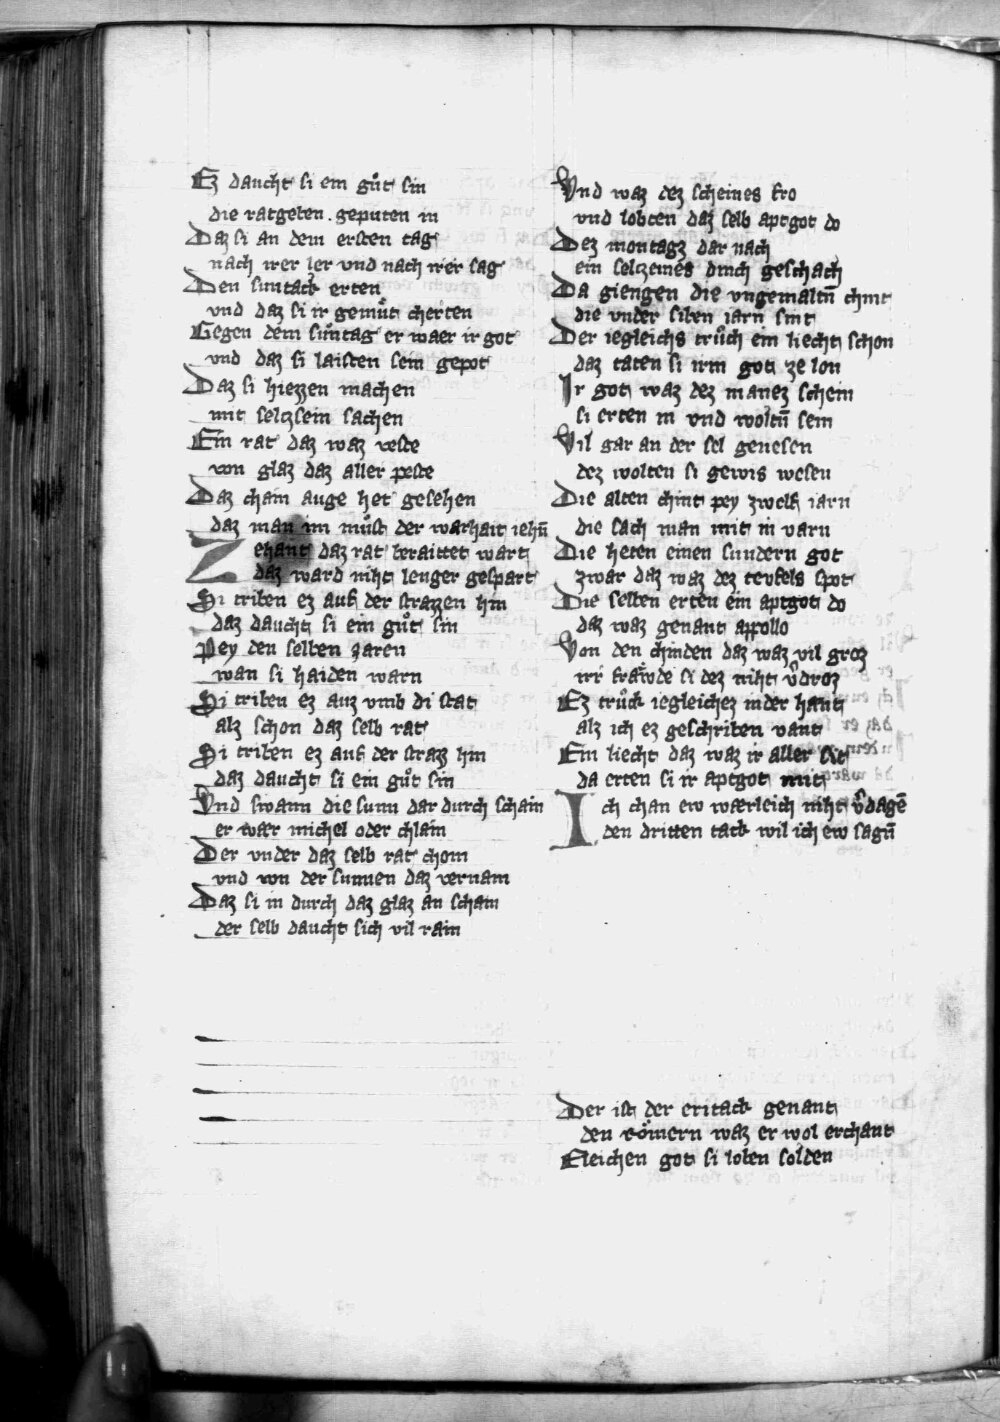 Ez daucht si ein guͦt sin
die ratgeben . geputen in
Daz si an dem ersten tag
nach irer ler vnd nach irer sag
Den suntack erten
vnd daz si ir gemuͤt cherten
Gegen dem suntag er waer ir got
vnd daz si laisten sein gepot
Daz si hiezzen machen
mit selczsein sachen
Ein rat daz waz veste
von glaz daz aller peste
Daz chain auge het gesehen
daz man im muͦst der warhait iehn̄
Zehant daz rat beraittet wart
daz ward niht lenger gespart
Si triben ez auf der strazzen hin
daz daucht si ein guͦt sin
Pey den selben jaren
wan si haiden warn
Si triben ez auz vmb di stat
alz schon daz selb rat
Si triben ez auf der strazz hin
daz daucht si ein guͦt sin
Vnd swann die sunn dar durch schain
er wær michel oder chlain
Der vnder daz selb rat chom
vnd von der sunnen daz vernam
Daz si in durch daz glaz an schain
der selb daucht sich vil rain
Vnd waz dez scheines fro
vnd lobten daz selb aptgot do
Dez montagz dar nach
ein selczeines dinch geschach
Da giengen die vngemaltn̄ chint
die vnder siben iarn sint
Der iegleichs truͦch ein liecht schon
daz taten si irm got ze lon
Ir got waz dez manez schein
si erten in vnd woltn̄ sein
Vil gar an der sel genesen
dez wolten si gewis wesen
Die alten chint pey zwelf iarn
die sach man mit in varn
Die heten einen sundern got
zwar daz waz dez teufels spot
Die selben erten ein aptgot do
daz waz genant appollo
Von den chinden daz waz vil groz
irr fraͤwde si dez niht v̄droz
Ez truͦck iegleichez in der hant
alz ich ez geschriben vant
Ein liecht daz waz ir aller sit
da erten si ir aptgot mit
Ich chan ew wærleich niht v̄dagē
den dritten tack wil ich ew sagn̄
Der ist der eritack genant
den roͤmern waz er wol erchant
Eleichen got si loben solden